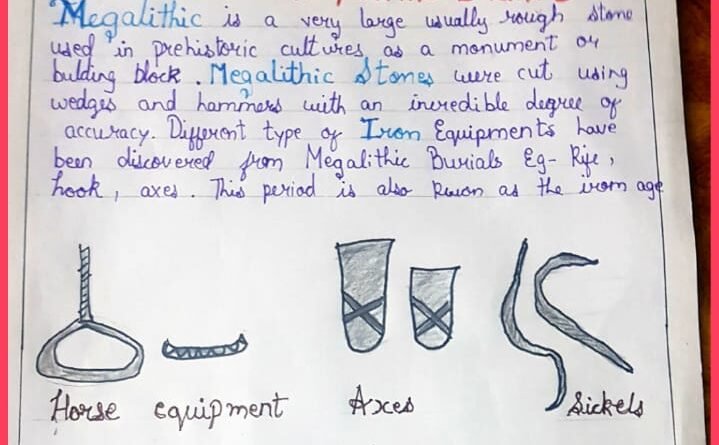 Megalithic is a very large usually rough stone
used in prehistoric cultures as a monument or
bulding block. Megalithic Stones were cut using
wedges and hammers with an incredible degree of
accuracy. Different type of Iron Equipments have
been discovered from Megalithic Burials Eg-
hook, axes. This period is also as the iron age
Horse equipment Axes Sickels